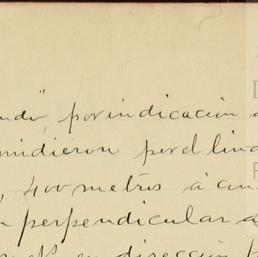 ndo", por indicación
midieron por el lind
, 400 metros á
n perpendicular a
en dirección